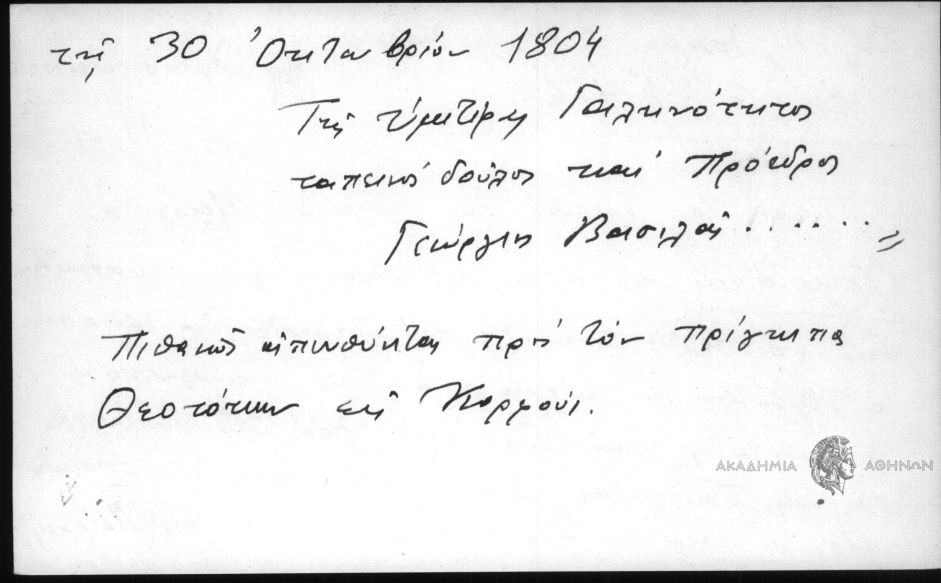 τῇ 30 Ὀκτωβρίου 1804
Τῆς Ὑμετέρας Γαληνότητος
ταπεινός δοῦλος καί Πρόεδρος
Γεώργιος Βασιλᾶς . . . . . .
Πιθανῶς ἀπευθύνεται πρός τόν πρίγκηπα
Θεοτόκην εἰς Κορφούς.
ΑΚΑΔΗΜΙΑ ΑΘΗΝΩΝ